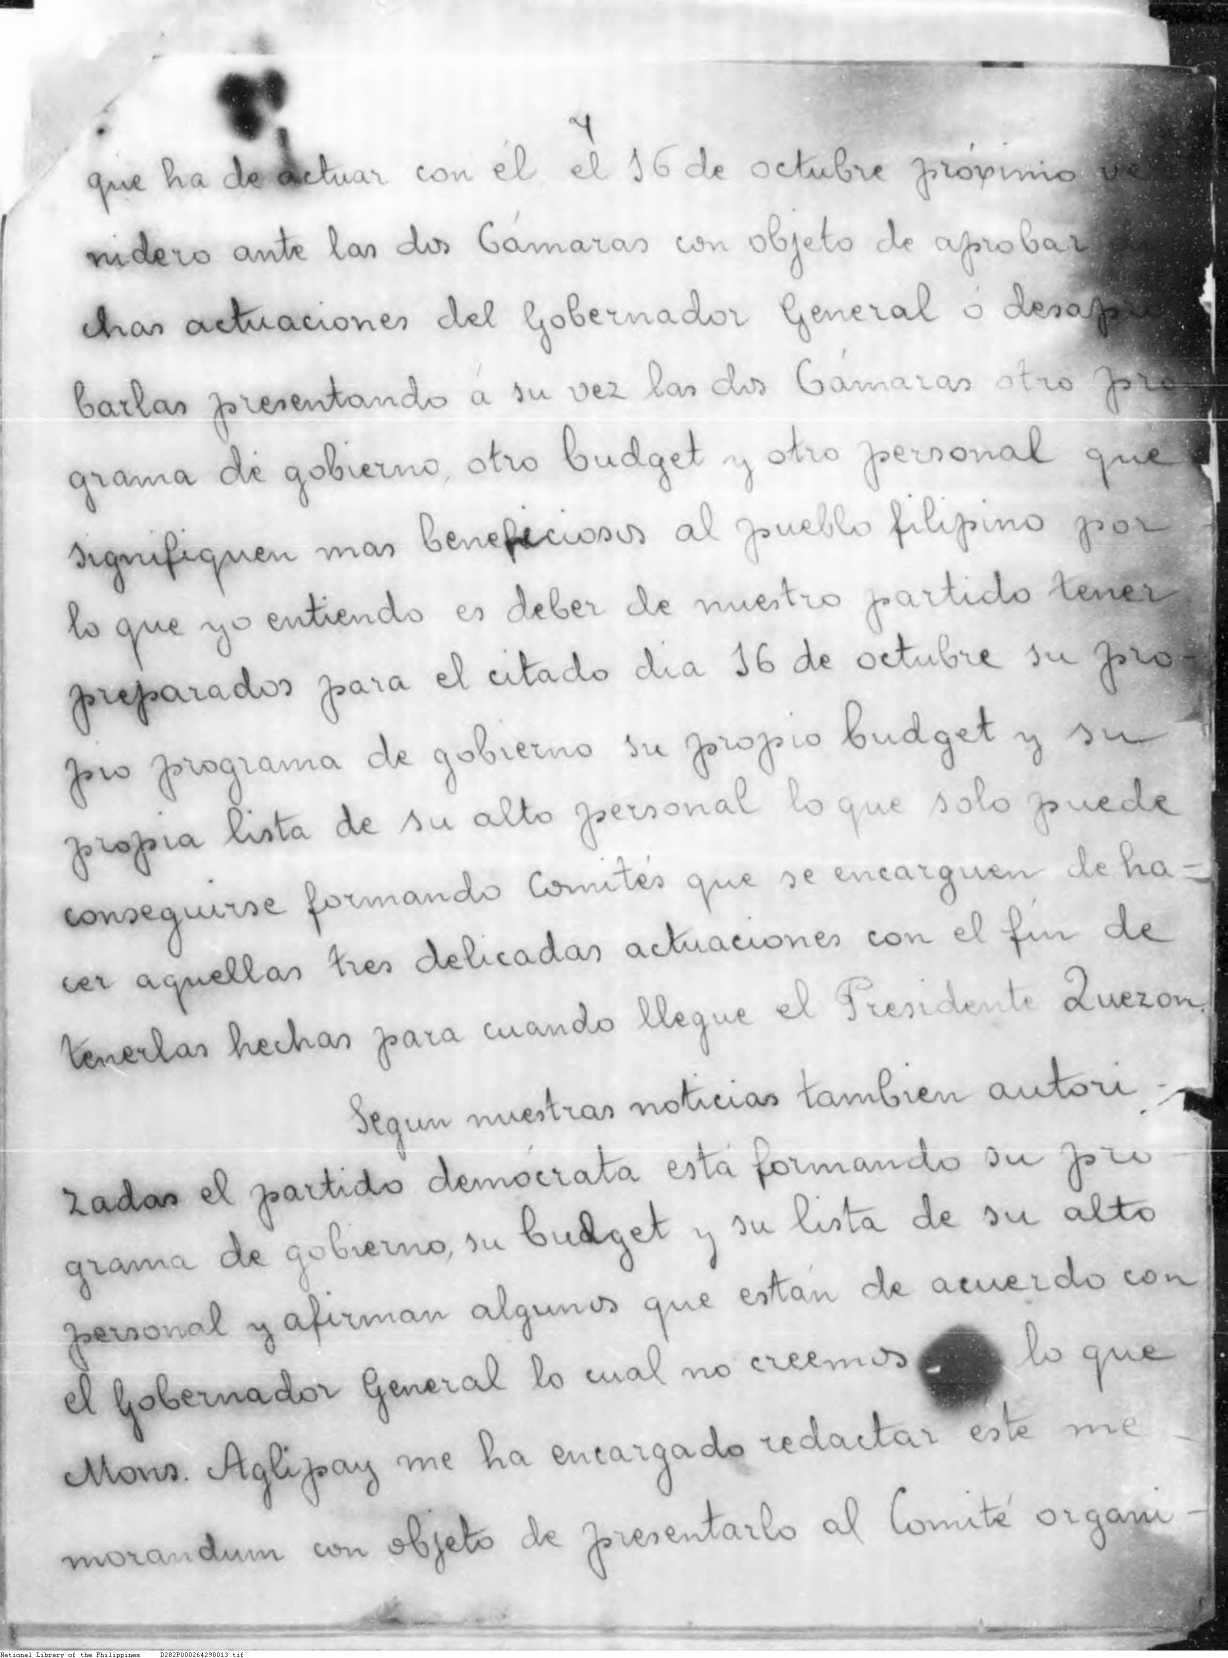 4
que ha de actuar con él el 16 de octubre próximo ve
nidero ante las dos Cámaras con objeto de aprobar
chas actuaciones del Gobernador General ó desapro
barlas presentando á su vez las dos Cámaras otro pro
grama de gobierno, otro budget y otro personal que
signifiquen mas beneficiosos al pueblo filipino por
lo que yo entiendo es deber de nuestro partido tener
preparados para el citado dia 16 de octubre su pro-
pio programa de gobierno su propio budget y su
propia lista de su alto personal lo que solo puede
conseguirse formando Comités que se encarguen de ha=
cer aquellas tres delicadas actuaciones con el fín de
tenerlas hechas para cuando llegue el Presidente Quezon.
Segun nuestras noticias tambien autori-
zadas el partido demócrata está formando su pro-
grama de gobierno, su budget y su lista de su alto
personal y afirman algunos que están de acuerdo con
el Gobernador General lo cual no creemos lo que
Mons. Aglipay me ha encargado redactar este me-
morandum con objeto de presentarlo al Comité organi-
National Library of the Philippines D282P000264298013.tif